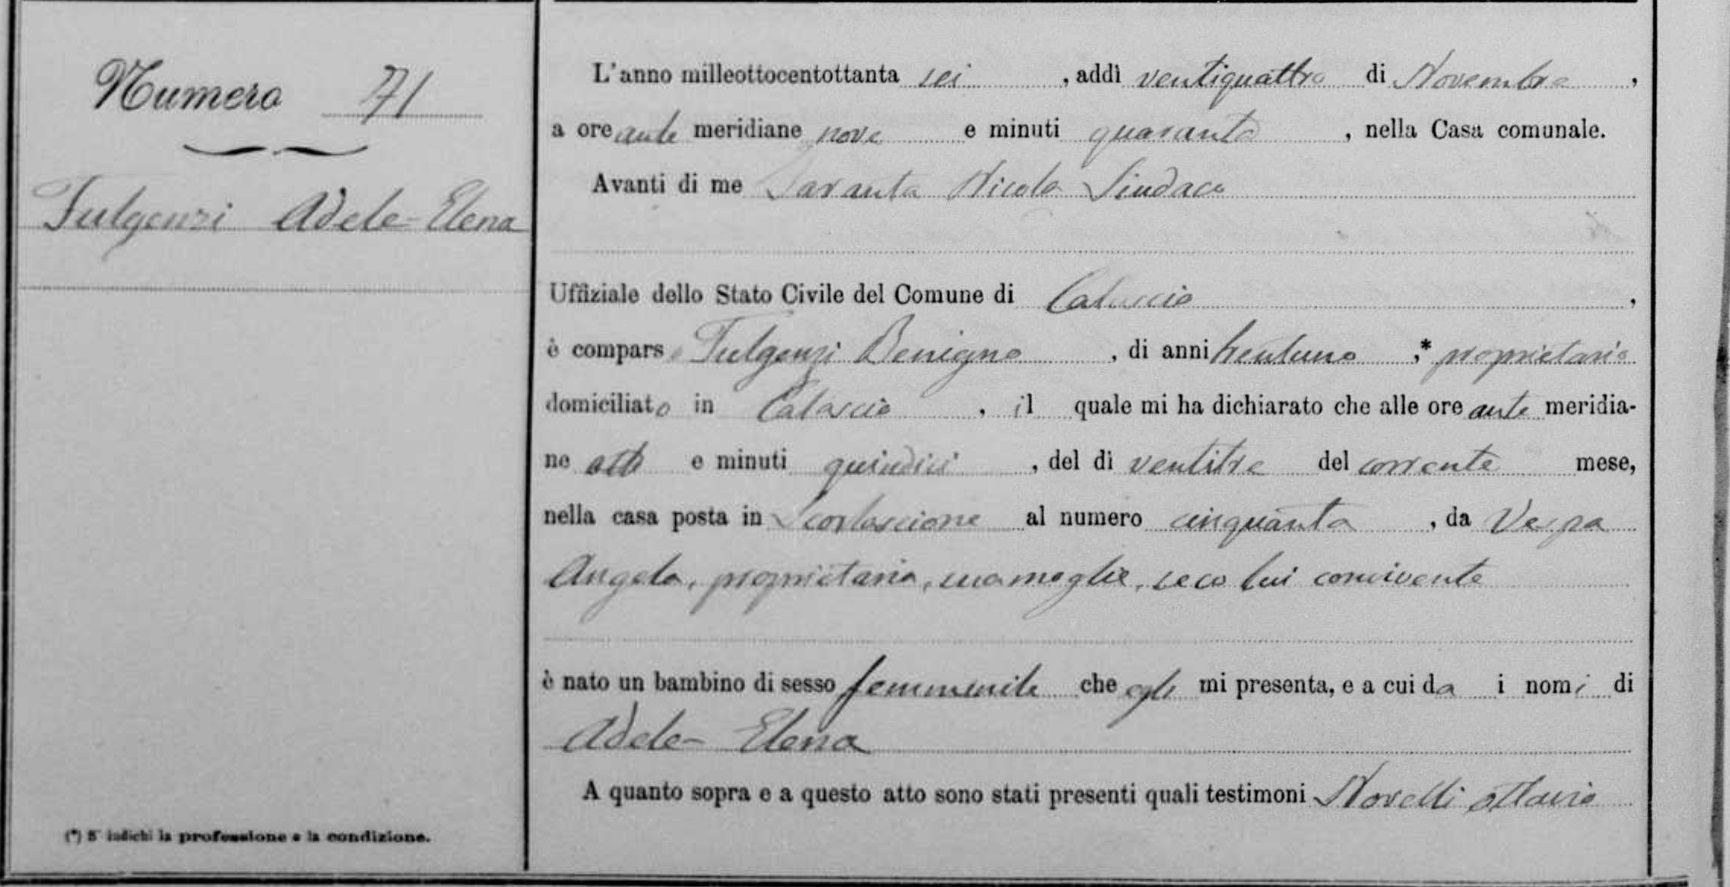 Numero 71
Fulgenzi Adele-Elena
(*) S'indichi la professione e la condizione.
L'anno milleottocentottanta sei, addì ventiquattro di Novembre,
a ore ante meridiane nove e minuti quaranta, nella Casa comunale.
Avanti di me Taranta Nicola Sindaco
Uffiziale dello Stato Civile del Comune di Calascio,
è comparso Fulgenzi Benigno, di anni trentuno,* proprietario
domiciliato in Calascio, il quale mi ha dichiarato che alle ore ante meridia-
ne otto e minuti quindici, del dì ventitre del corrente mese,
nella casa posta in al numero cinquanta, da
Angela, proprietaria, sua moglie, seco lui convivente
è nato un bambino di sesso femminile che egli mi presenta, e a cui da i nomi di
Adele-Elena
A quanto sopra e a questo atto sono stati presenti quali testimoni Novelli Ottavio